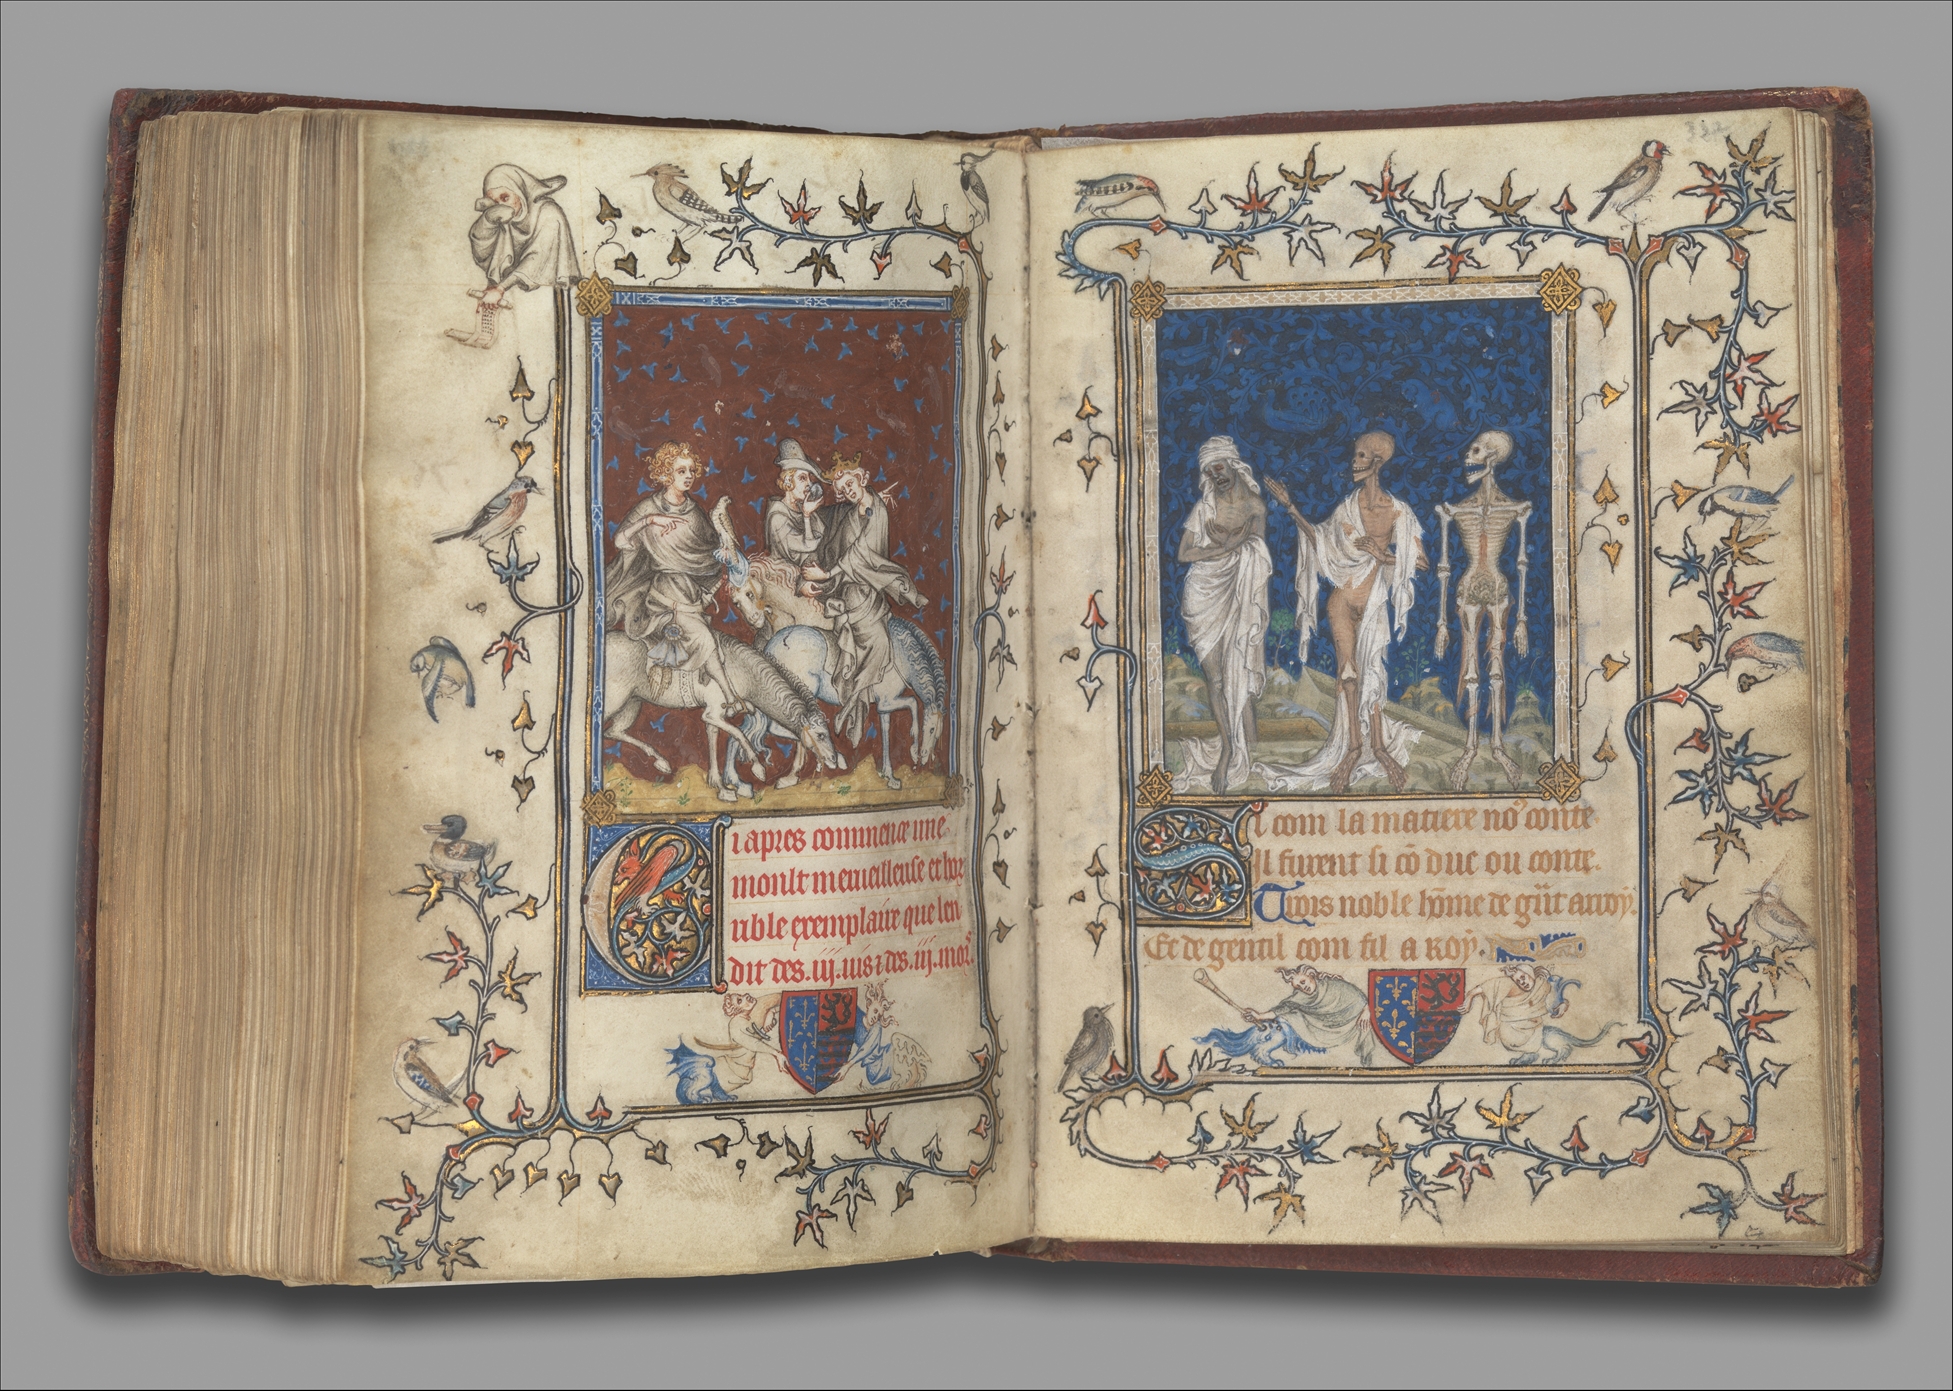 Ci apres commence une
moult merueilleuse et hor
rible exemplaire que len
dit des .iij. uis z des .iij. mors.
Si com la matiere nos conte
Il furent si cō duc ou conte.
Trois noble hōme de grāt arroy.
Et de gentil com fil a roy.